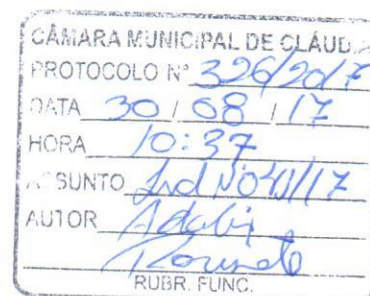 CÂMARA MUNICIPAL DE CLÁUDIA
PROTOCOLO Nº 326/2017
DATA 30 / 08 / 17
HORA 10:37
ASSUNTO Ind Nº 041/17
AUTOR
RUBR. FUNC.